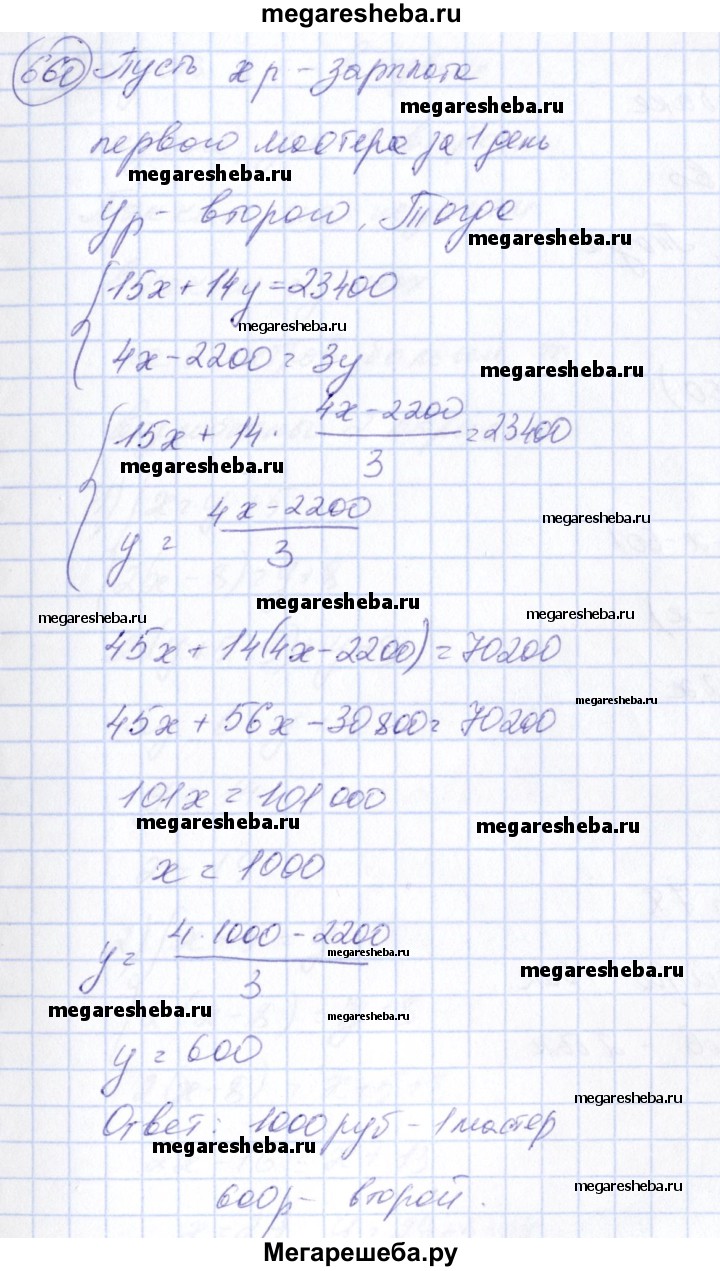 megaresheba.ru
660 Пусть x р - зарплата
megaresheba.ru
первого мастера за 1 день
megaresheba.ru
y р - второго. Тогда
megaresheba.ru
15x + 14y = 23400
megaresheba.ru
4x - 2200 = 3y
megaresheba.ru
15x + 14 · (4x - 2200)/3 = 23400
megaresheba.ru
y = (4x - 2200)/3
megaresheba.ru
megaresheba.ru
megaresheba.ru
megaresheba.ru
45x + 14(4x - 2200) = 70200
megaresheba.ru
45x + 56x - 30800 = 70200
101x = 101000
megaresheba.ru
megaresheba.ru
x = 1000
y = (4 · 1000 - 2200)/3
megaresheba.ru
megaresheba.ru
megaresheba.ru
megaresheba.ru
y = 600
megaresheba.ru
Ответ: 1000 руб - 1 мастер
megaresheba.ru
megaresheba.ru
600 р - второй.
megaresheba.ru
Мегарешеба.ру